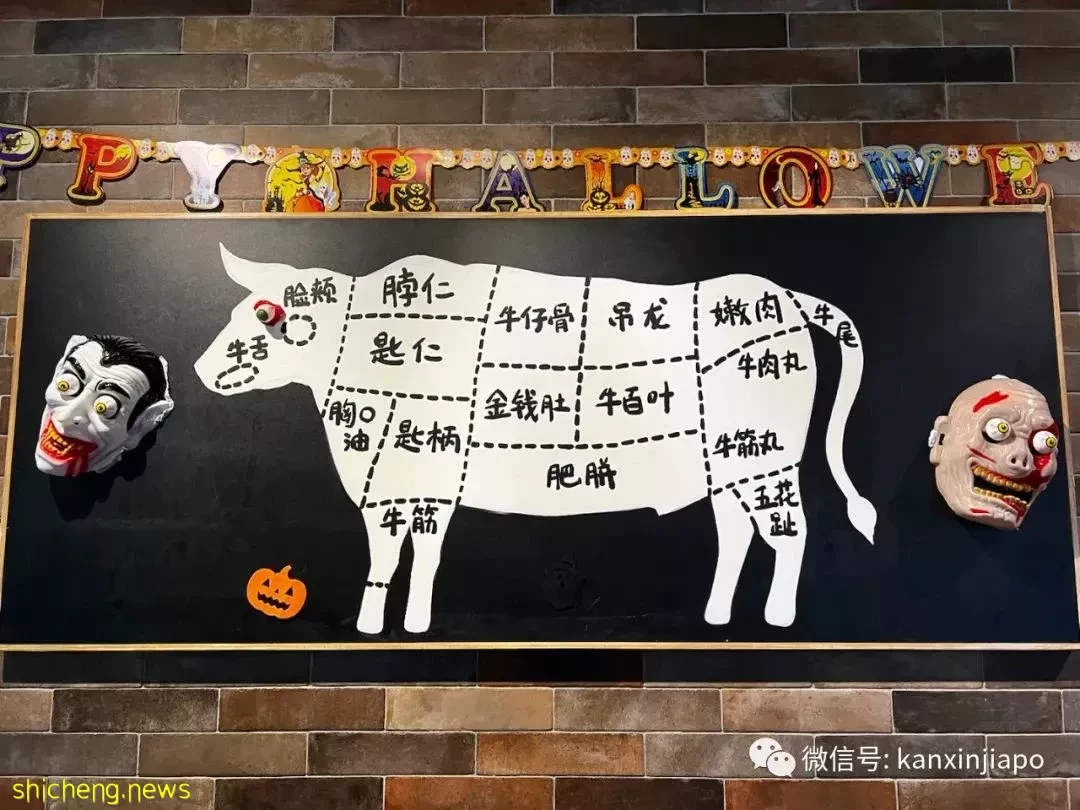 PPY HALLOWE
脸颊
脖仁
牛仔骨
吊龙
嫩肉
牛尾
匙仁
牛舌
牛肉丸
胸口油
匙柄
金钱肚
牛百叶
牛筋丸
肥胼
牛筋
五花趾
微信号: kanxinjiapo
shicheng.news